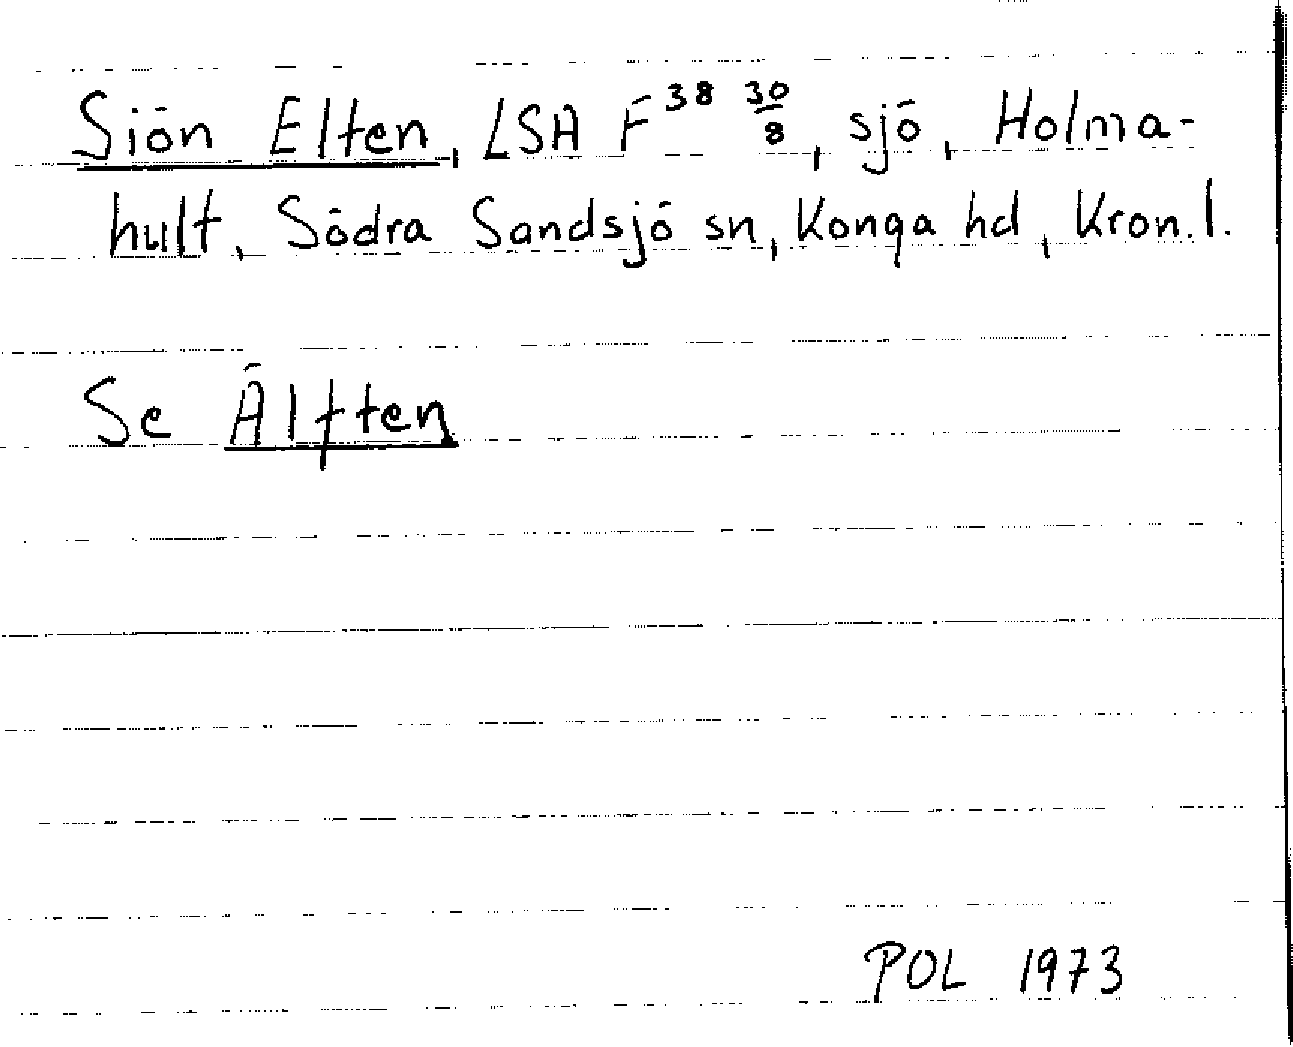 Siön Elten, LSA F³⁸ 30/8, sjö, Holma-
hult, Södra Sandsjö sn, Konga hd, Kron.l.
Se Älften
POL 1973